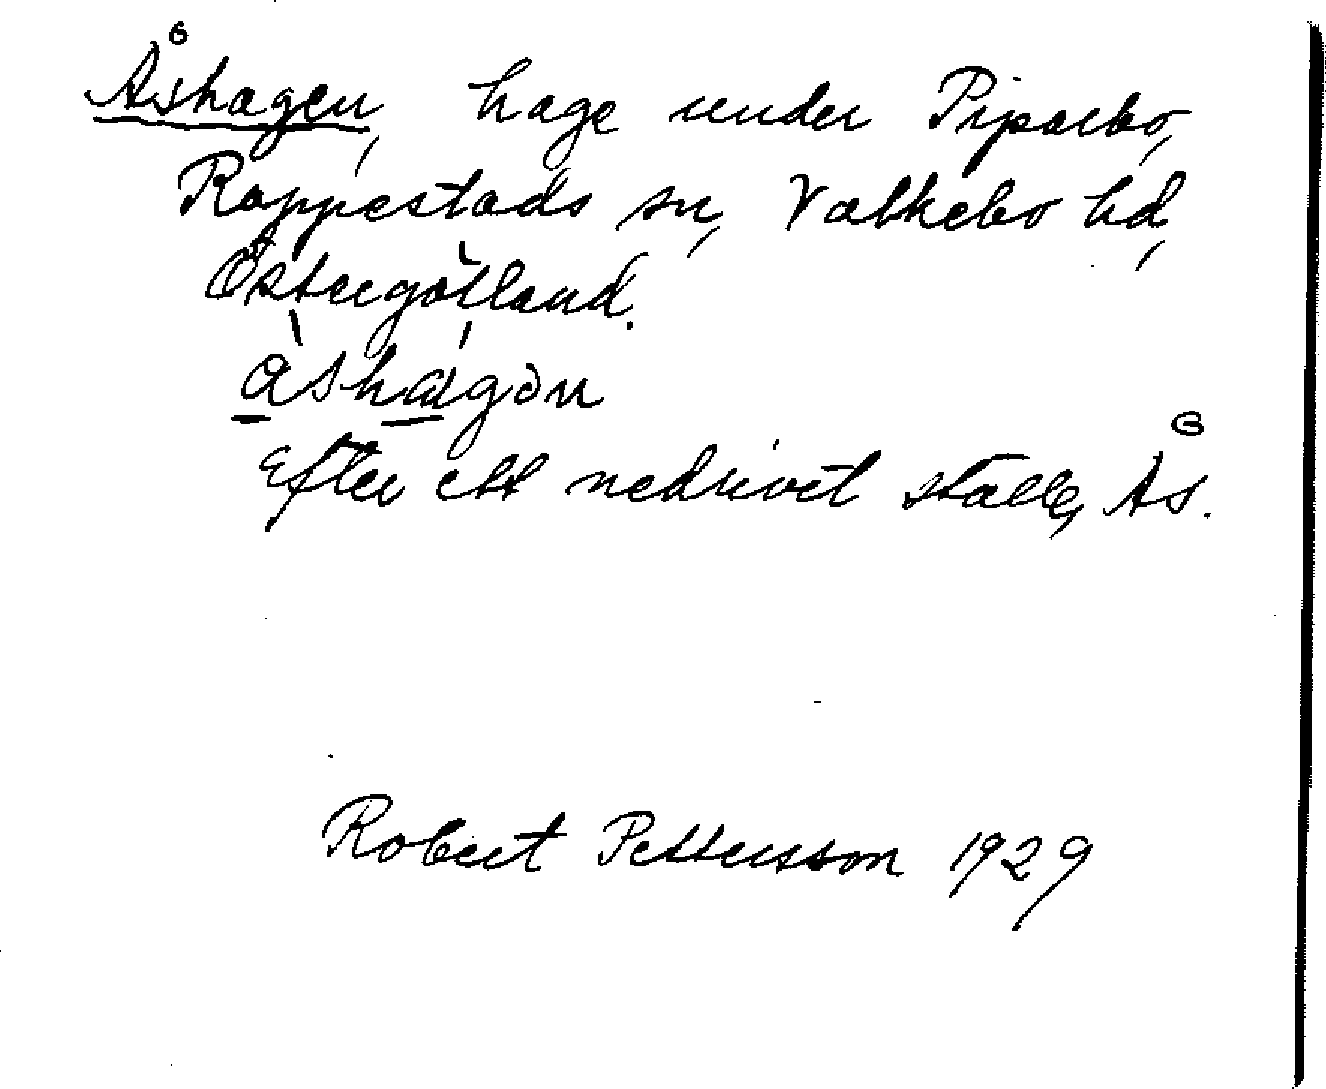 Åshagen, hage under Piparbo,
Rappestads sn, Valkebo hd,
Östergötland.
åshagən
Efter ett nedrivet ställe, Ås.
Robert Pettersson 1929